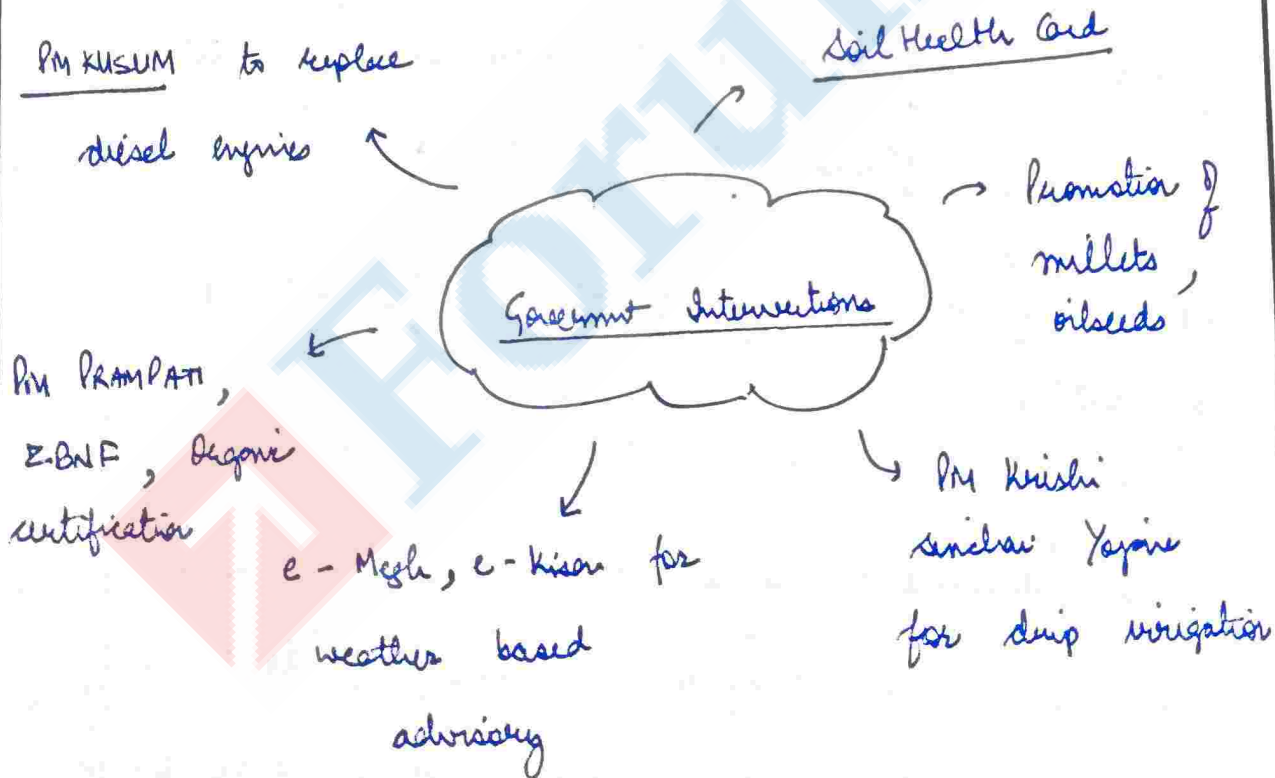 PM KUSUM to replace
diesel engines
Soil Health Card
Promotion of
millets,
oilseeds
Government Interventions
PM PRAMPATI,
ZBNF, Organic
certification
e-Megh, e-Kisan for
weather based
advisory
PM Krishi
Sinchai Yojana
for drip irrigation
Foru